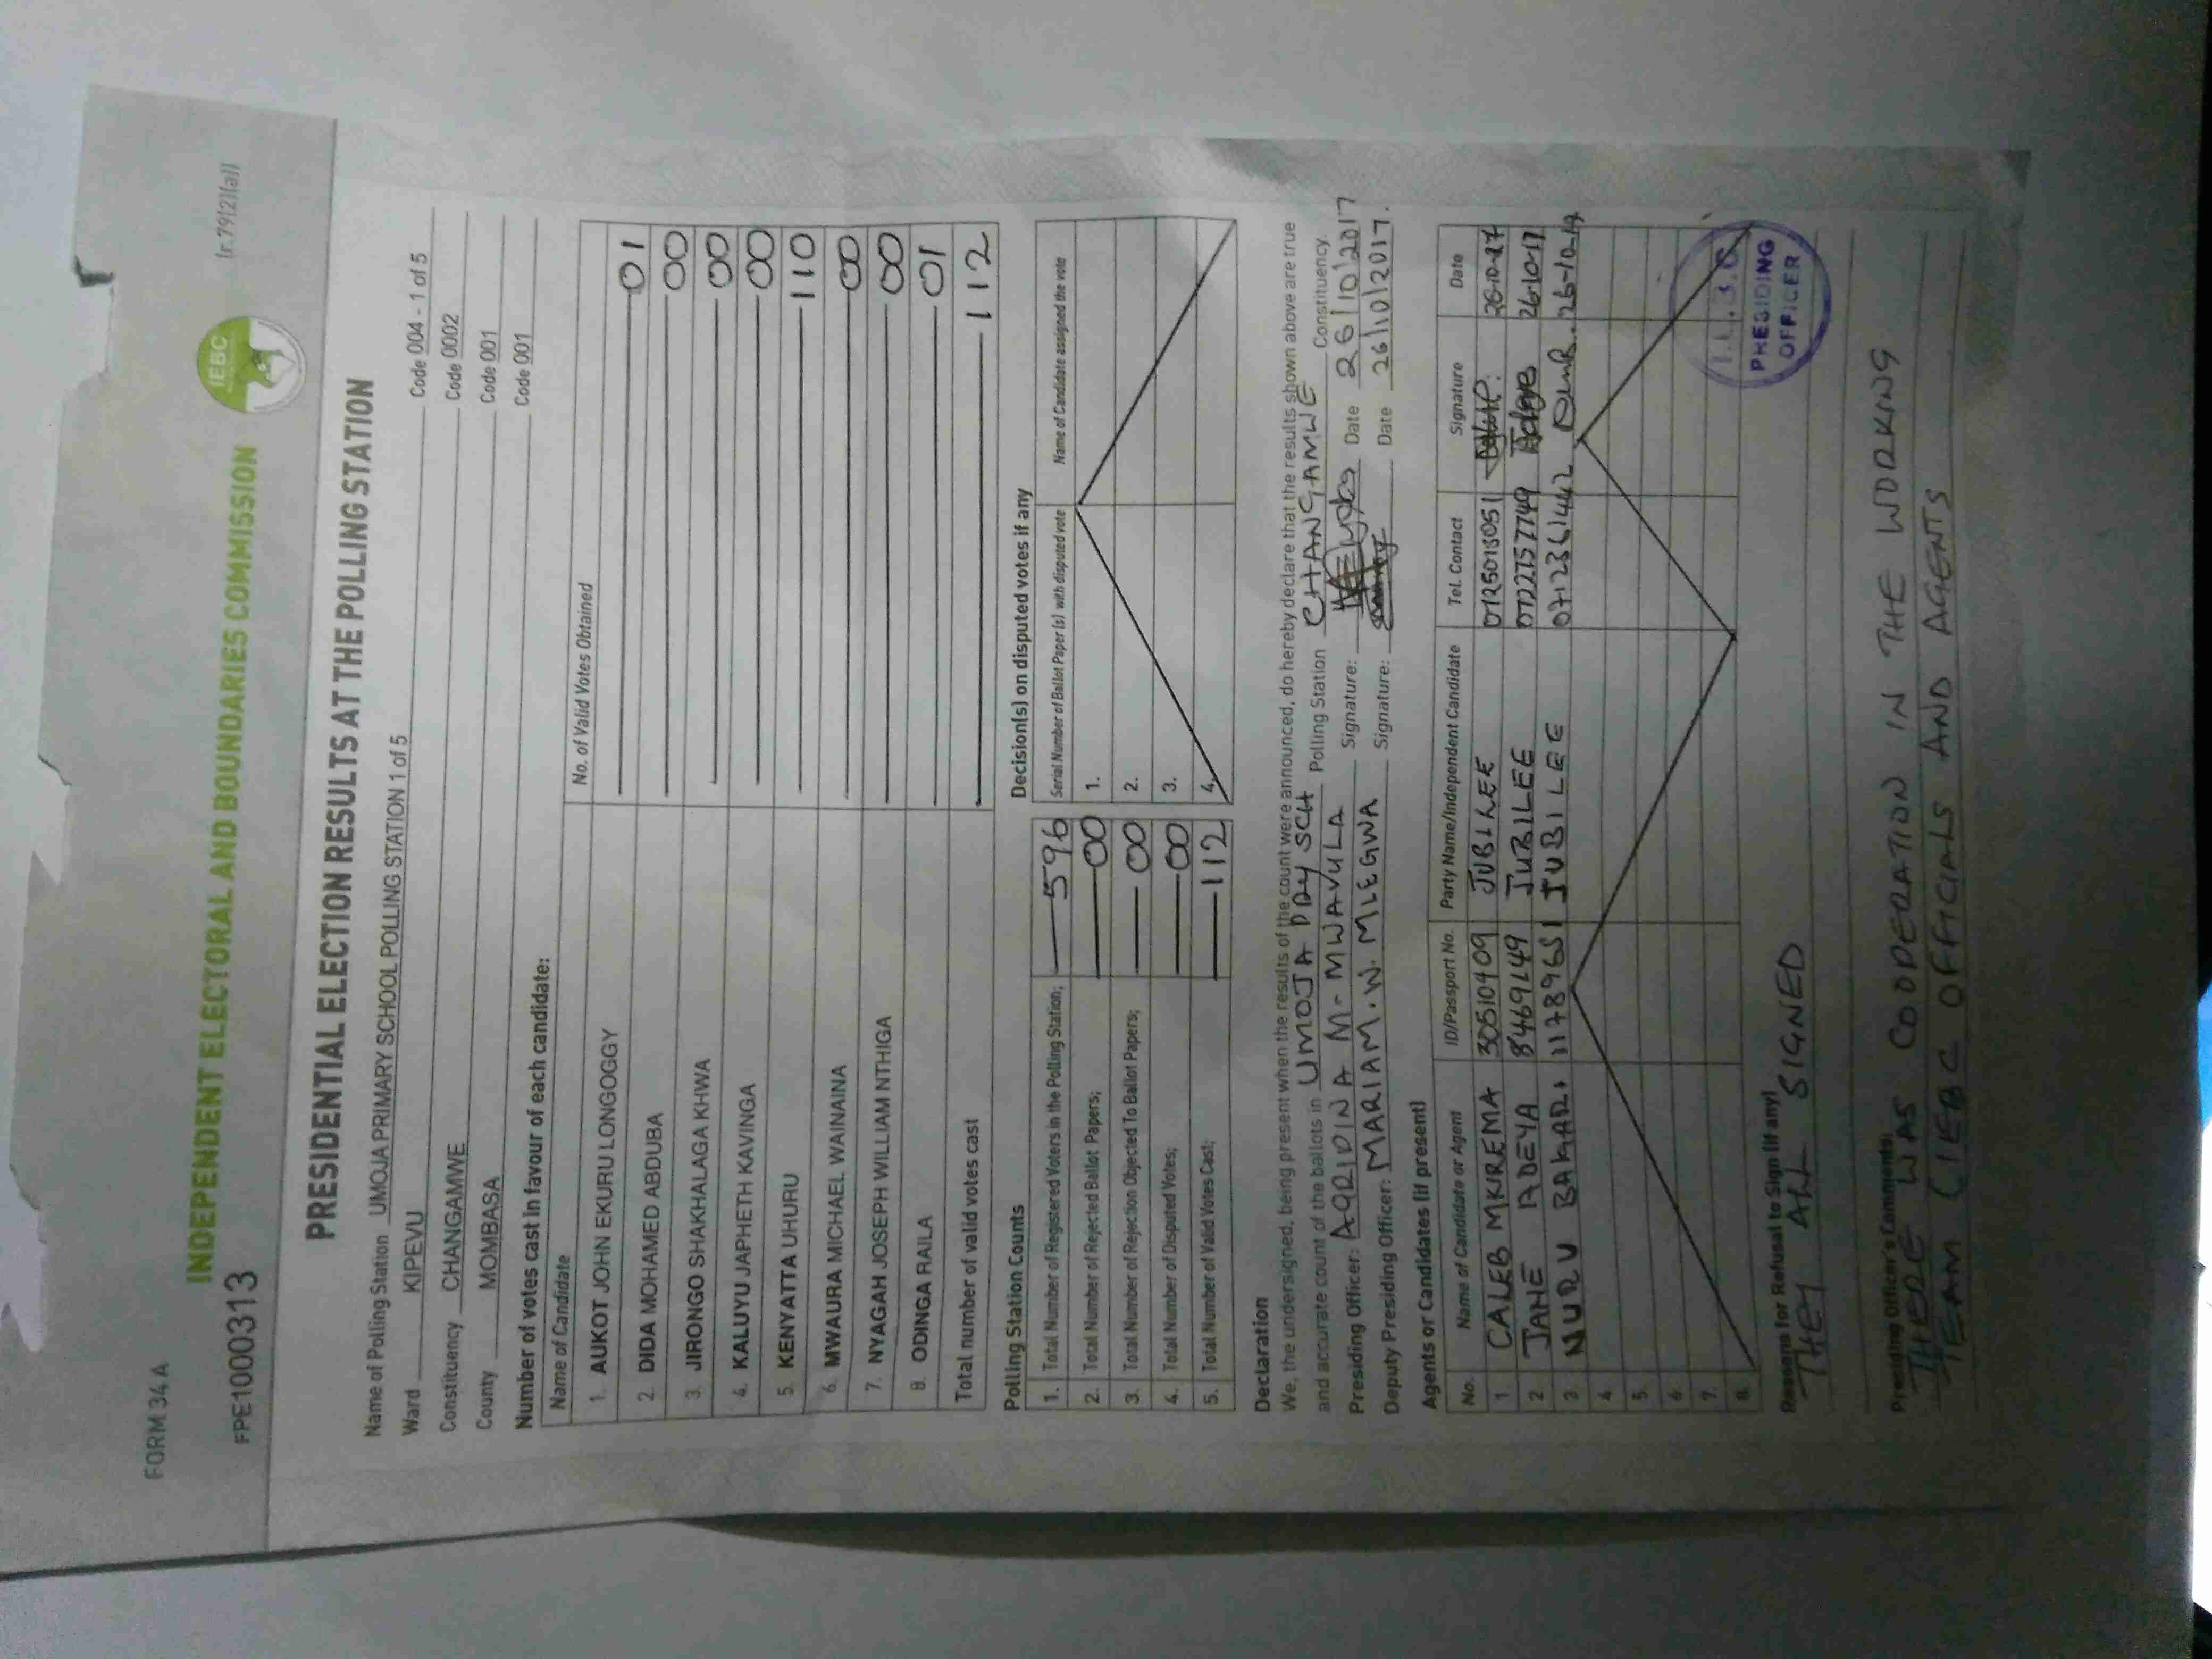 FORM 34 A
(r.79(2)(a))
FPE1000313
IEBC
INDEPENDENT ELECTORAL AND BOUNDARIES COMMISSION
PRESIDENTIAL ELECTION RESULTS AT THE POLLING STATION
Name of Polling Station UMOJA PRIMARY SCHOOL POLLING STATION 1 of 5 Code 004 - 1 of 5
Ward KIPEVU Code 0002
Constituency CHANGAMWE Code 001
County MOMBASA Code 001
Number of votes cast in favour of each candidate:
Name of Candidate No. of Valid Votes Obtained
1. AUKOT JOHN EKURU LONGOGGY 01
2. DIDA MOHAMED ABDUBA 00
3. JIRONGO SHAKHALAGA KHWA 00
4. KALUYU JAPHETH KAVINGA 00
5. KENYATTA UHURU 110
6. MWAURA MICHAEL WAINAINA 00
7. NYAGAH JOSEPH WILLIAM NTHIGA 00
8. ODINGA RAILA 01
Total number of valid votes cast 112
Polling Station Counts
1. Total Number of Registered Voters in the Polling Station; 596
2. Total Number of Rejected Ballot Papers; 00
3. Total Number of Rejection Objected To Ballot Papers; 00
4. Total Number of Disputed Votes; 00
5. Total Number of Valid Votes Cast; 112
Decision(s) on disputed votes if any
Serial Number of Ballot Paper (s) with disputed vote Name of Candidate assigned the vote
1.
2.
3.
4.
Declaration
We, the undersigned, being present when the results of the count were announced, do hereby declare that the results shown above are true
and accurate count of the ballots in UMOJA PRY SCH Polling Station CHANGAMWE Constituency.
Presiding Officer: AGRIDINA M. MWAVULA Signature: Date 26/10/2017
Deputy Presiding Officer: MARIAM. W. MLEGWA Signature: Date 26/10/2017.
Agents or Candidates (if present)
No. Name of Candidate or Agent ID/Passport No. Party Name/Independent Candidate Tel. Contact Signature Date
1 CALEB MKIREMA 30510409 JUBILEE 0725013051
2 JANE ADEYA 8469149 JUBILEE 0722757749 26-10-17
3 NURU BAKARI JUBILEE 0712361442
4
5.
6.
7.
8.
PRESIDING
OFFICER
Reasons for Refusal to Sign (if any)
THEY ALL SIGNED
Presiding Officer's Comments:
THERE WAS COOPERATION IN THE WORKING
TEAM (IEBC OFFICIALS AND AGENTS